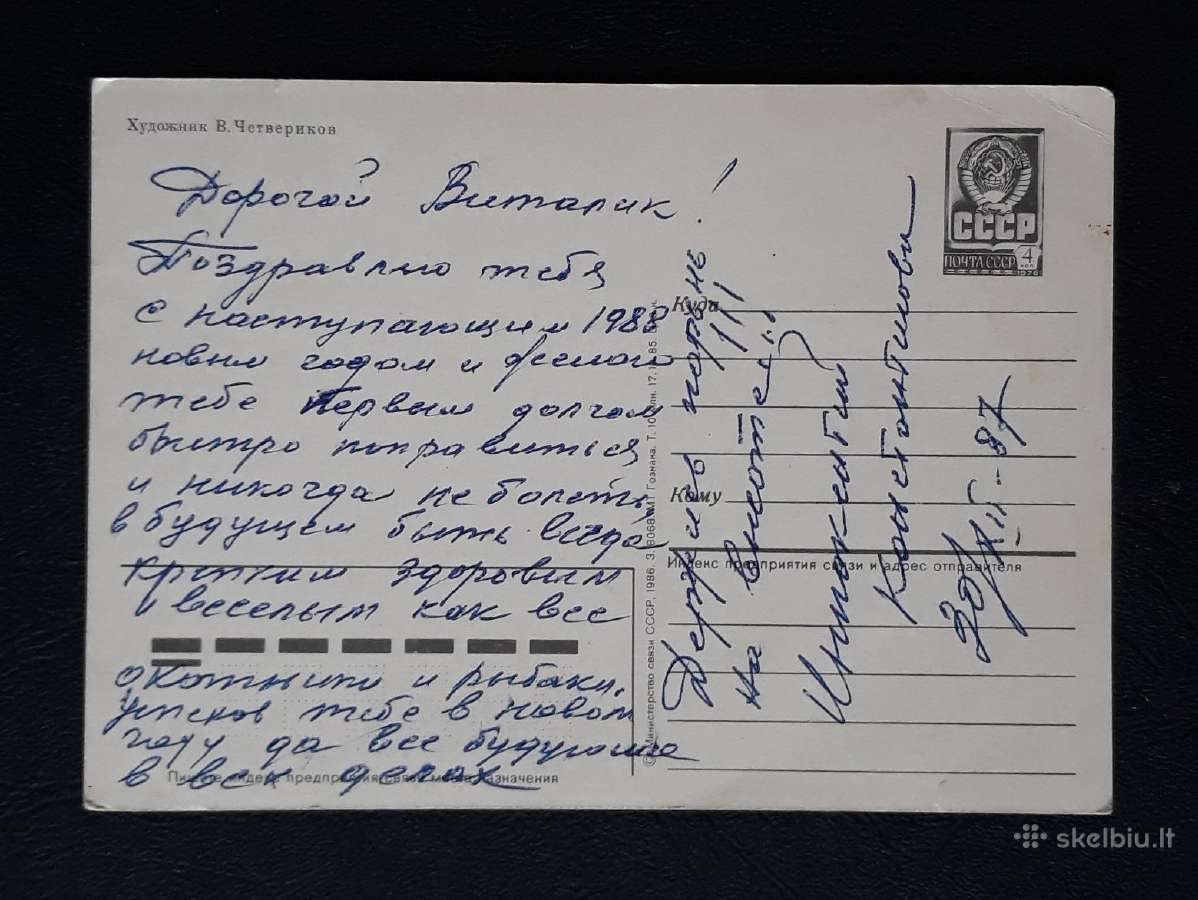 Художник В.Четвериков
Дорогой Виталик!
Поздравляю тебя
с наступающим 1988
новым годом и желаю
тебе первым долгом
быстро поправиться
и никогда не болеть
в будущем быть всегда
крепким здоровым
и веселым как все
охотники и рыбаки.
успехов тебе в новом
году да все будующие
в всех делах
Пишите индекс предприятия связи места назначения
© Министерство связи СССР, 1986. З. 6068. МТ Гознака. Т. 10 млн. 17.12.85.
ПОЧТА СССР
СССР
4
коп
1976
Куда
Кому
Индекс предприятия связи и адрес отправителя
Держись парень
на высоте!!!
Иннокентий
Константинович
30/XII-87
skelbiu.lt